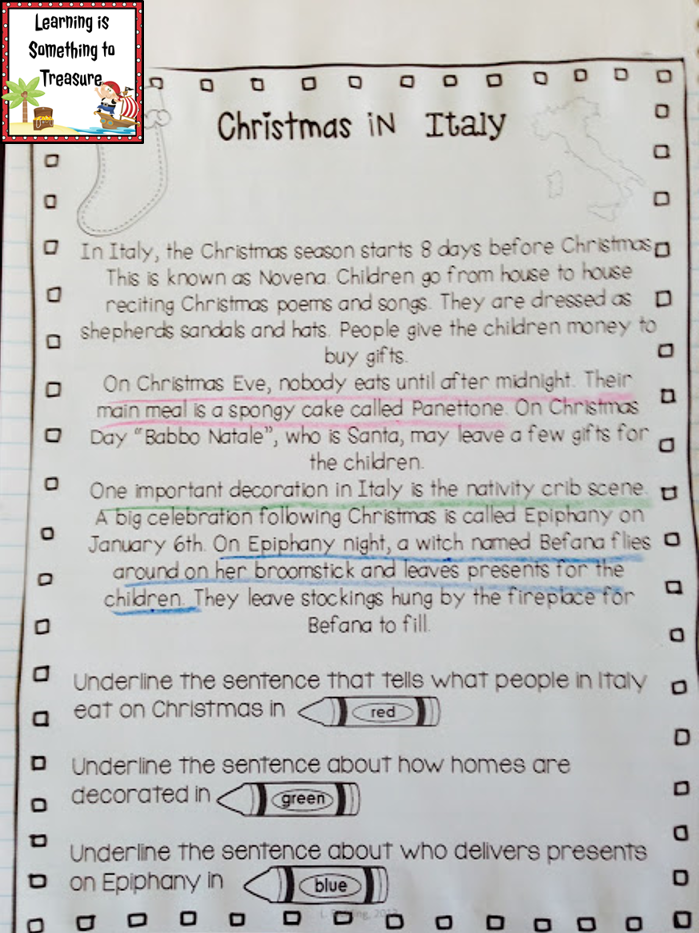 Learning is
Something to
Treasure
Christmas iN Italy
In Italy, the Christmas season starts 8 days before Christmas.
This is known as Novena. Children go from house to house
reciting Christmas poems and songs. They are dressed as
shepherds sandals and hats. People give the children money to
buy gifts.
On Christmas Eve, nobody eats until after midnight. Their
main meal is a spongy cake called Panettone. On Christmas
Day "Babbo Natale", who is Santa, may leave a few gifts for
the children.
One important decoration in Italy is the nativity crib scene.
A big celebration following Christmas is called Epiphany on
January 6th. On Epiphany night, a witch named Befana flies
around on her broomstick and leaves presents for the
children. They leave stockings hung by the fireplace for
Befana to fill.
Underline the sentence that tells what people in Italy
eat on Christmas in red
Underline the sentence about how homes are
decorated in green
Underline the sentence about who delivers presents
on Epiphany in blue